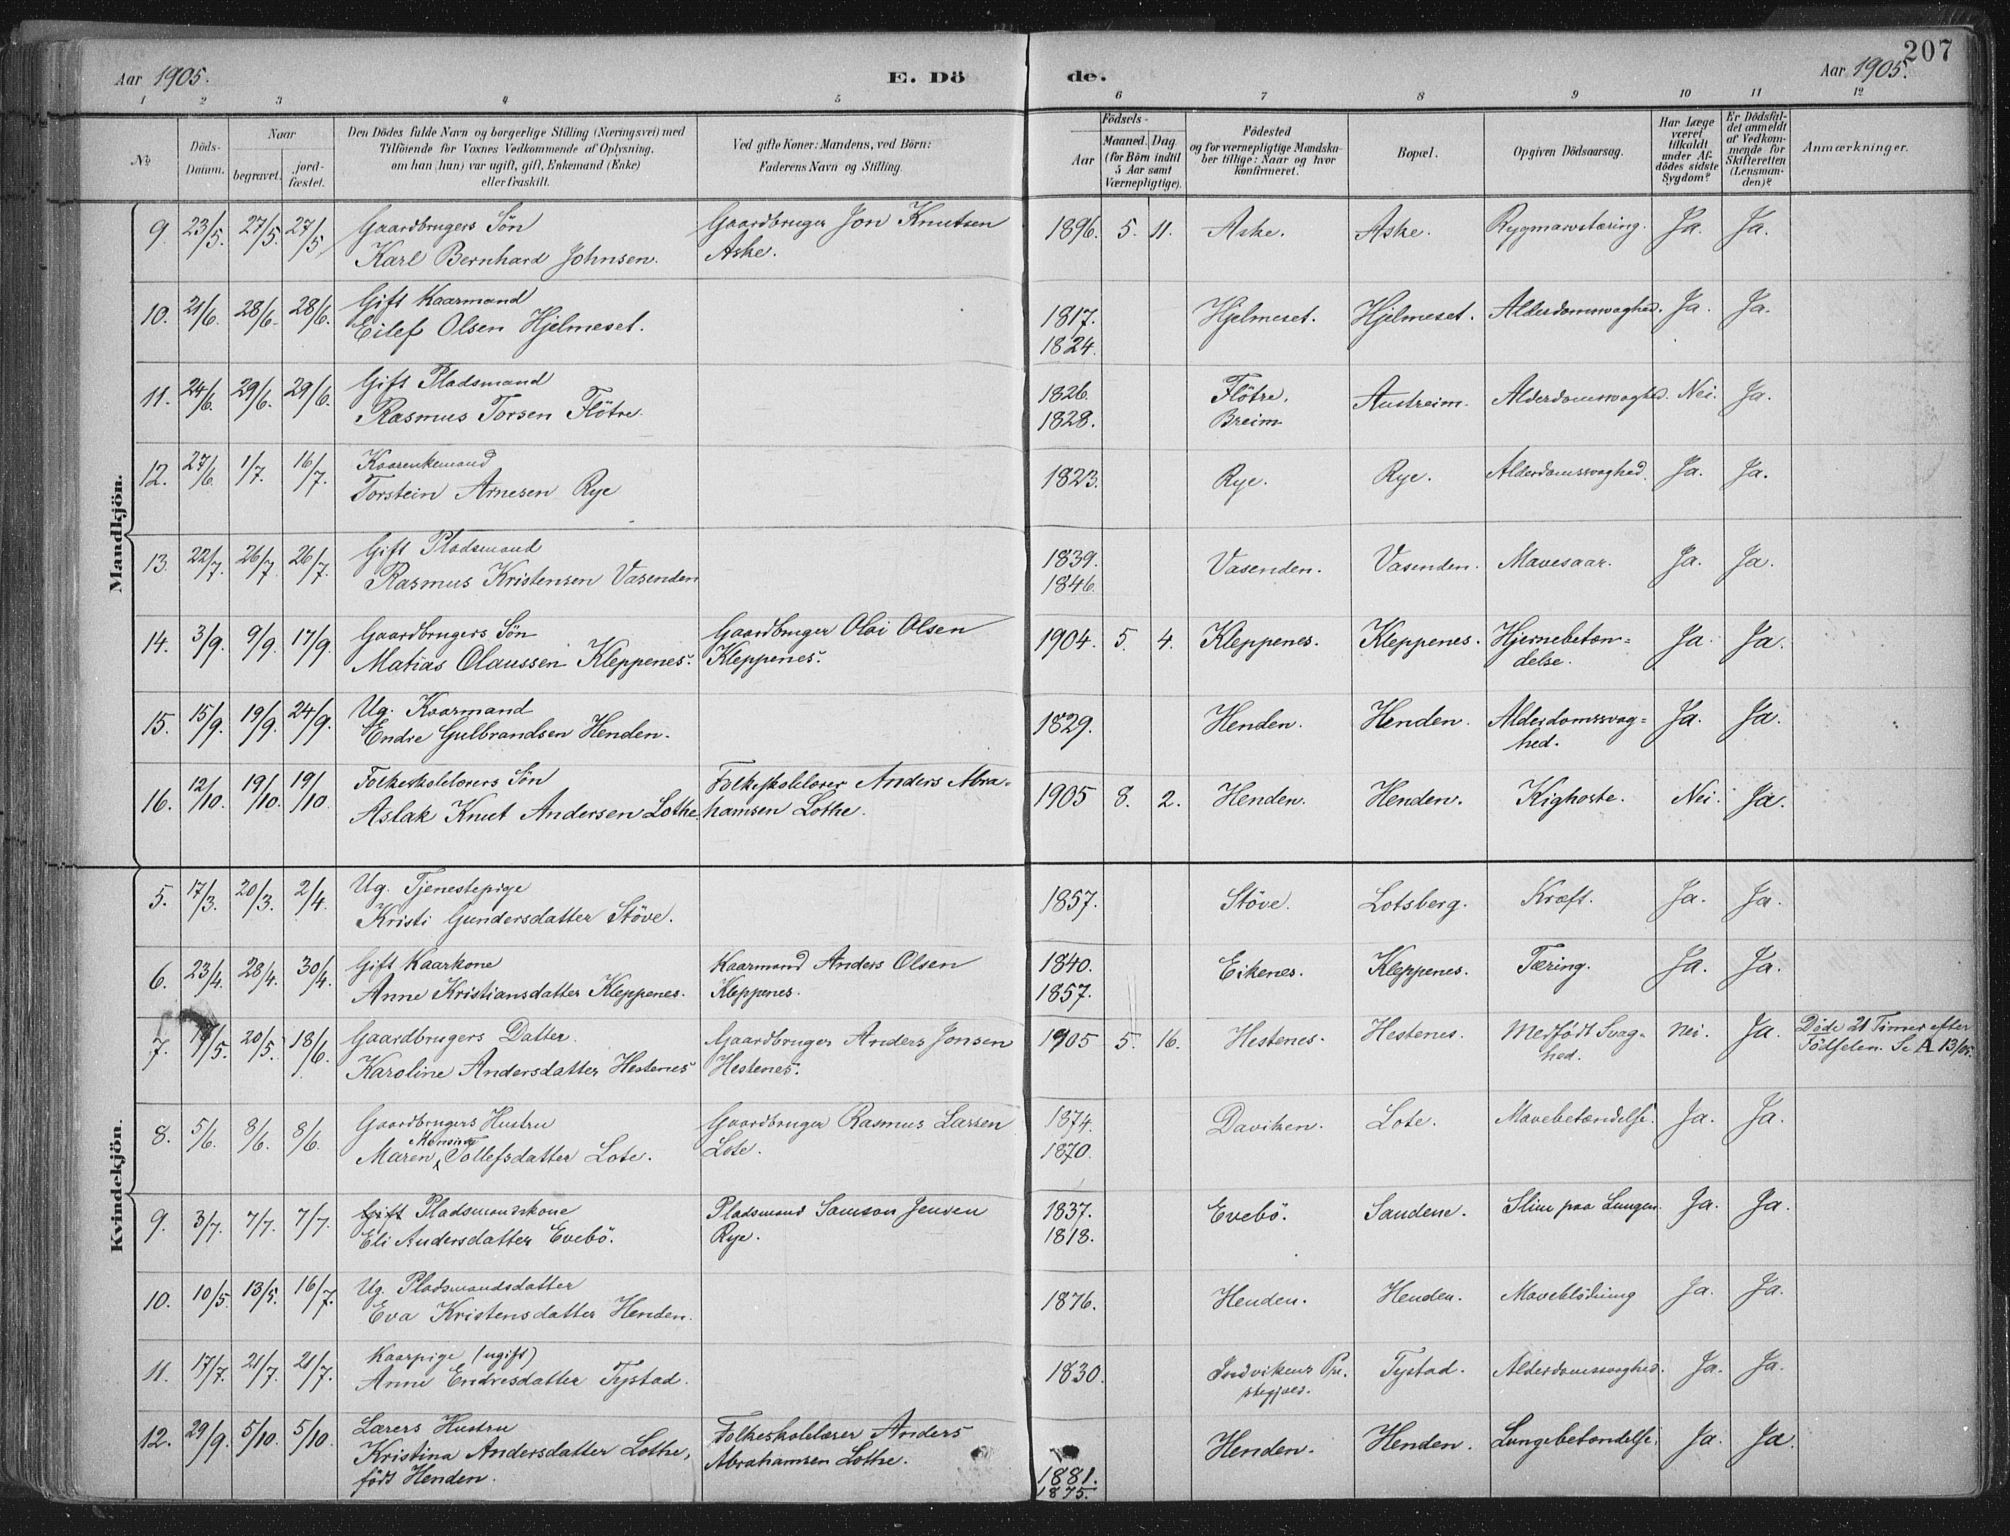 207
Aar 1905. E. Dö de. Aar 1905.
1 2 3 4 5 6 7 8 9 10 11 12
No
Döds-Datum.
Naar
begravet.
jord-fæstet.
Den Dödes fulde Navn og borgerlige Stilling (Næringsvei) med
Tilföiende for Voxnes Vedkommende af Oplysning,
om han (hun) var ugift, gift, Enkemand (Enke)
eller fraskilt.
Ved gifte Koner: Mandens, ved Börn:
Faderens Navn og Stilling.
Födsels-
Aar
Maaned. Dag
(for Börn indtil
5 Aar samt
Værnepligtige).
Födested
og for værnepligtige Mandska-
ber tillige: Naar og hvor
konfirmeret.
Bopæl.
Opgiven Dödsaarsag.
Har Læge
været
tilkaldt
under Af-
dödes sidste
Sygdom?
Er Dödsfal-
det anmeldt
af Vedkom-
mende for
Skifteretten
(Lensman-
den)?
Anmærkninger.
Mandkjön.
9. 23/5. 27/5. 27/5. Gaardbrugers Sön Gaardbruger Jon Knutsen 1896. 5. 11. Aske. Aske. Rygmarvstæring. Ja. Ja.
Karl Bernhard Johnsen. Aske.
10. 21/6. 28/6. 28/6. Gift Kaarmand 1817. Hjelmeset. Hjelmeset. Alderdomssvaghed. Ja. Ja.
Eilef Olsen Hjelmeset. 1824.
11. 24/6. 29/6. 29/6. Gift Pladsmand 1826. Flötre, Austreim. Alderdomssvaghed. Nei. Ja.
Rasmus Torsen Flötre. 1828. Breim
12. 27/6 1/7. 16/7. Kaarenkemand 1823. Rye. Rye. Alderdomssvaghed. Ja. Ja.
Torstein Arnesen Rye
13. 22/7. 26/7 26/7. Gift Pladsmand 1839. Vasenden. Vasenden. Mavesaar. Ja. Ja.
Rasmus Kristensen Vasenden 1846.
14. 3/9. 9/9. 17/9. Gaardbrugers Sön Gaardbruger Olai Olsen 1904. 5. 4. Kleppenes. Kleppenes. Hjernebetæn- Ja. Ja.
Matias Olaussen Kleppenes. Kleppenes. delse.
15. 15/9. 19/9. 24/9. Ug. Kaarmand 1829. Henden. Henden. Alderdomssvag- Ja. Ja.
Endre Gulbrandsen Henden. hed.
16. 12/10. 19/10. 19/10. Folkeskolelærers Sön Folkeskolelærer Anders Abra- 1905 8. 2. Henden. Henden. Kighoste. Nei. Ja.
Aslak Knut Andersen Lothe. hamsen Lothe.
Kvindekjön.
5. 17/3. 20/3. 2/4. Ug. Tjenestepige 1857. Stöve. Lotsberg. Kræft. Ja. Ja.
Kristi Gundersdatter Stöve.
6. 23/4. 28/4. 30/4. Gift Kaarkone Kaarmand Anders Olsen 1840. Eikenes. Kleppenes. Tæring. Ja. Ja.
Anne Kristiansdatter Kleppenes. Kleppenes. 1857.
7. /5. 20/5. 18/6. Gaardbrugers Datter. Gaardbruger Anders Jonsen 1905 5 16. Hestenes. Hestenes. Medfödt Svag- Nei. Ja. Döde 21 Timer efter
Karoline Andersdatter Hestenes Hestenes. hed. Födselen. Se A 13/05.
8. 5/6. 8/6. 8/6. Gaardbrugers Hustru Gaardbruger Rasmus Larsen 1874. Daviken. Lote. Mavebetændelse. Ja. Ja.
Maren Tollefsdatter Lote. Lote. 1870.
9. 3/7. 7/7. 7/7. Gift Pladsmandskone Pladsmand Samson Jensen 1837. Evebö. Sandene. Slim paa Lungen. Ja. Ja.
Eli Andersdatter Evebö. Rye. 1818.
10. 10/5. 13/5. 16/7. Ug. Pladsmandsdatter 1876. Henden. Henden. Maveblödning Ja. Ja.
Eva Kristensdatter Henden.
11. 17/7. 21/7. 21/7. Kaarpige (ugift) 1830. Indvikens Pre- Tystad. Alderdomssvaghed. Ja. Ja.
Anne Endresdatter Tystad. stegjæld.
12. 29/9. 5/10. 5/10. Lærers Hustru Folkeskolelærer Anders Henden. Henden. Lungebetændelse. Ja. Ja.
Kristina Andersdatter Lothe, Abrahamsen Lothe. 1881.
födt Henden. 1875.